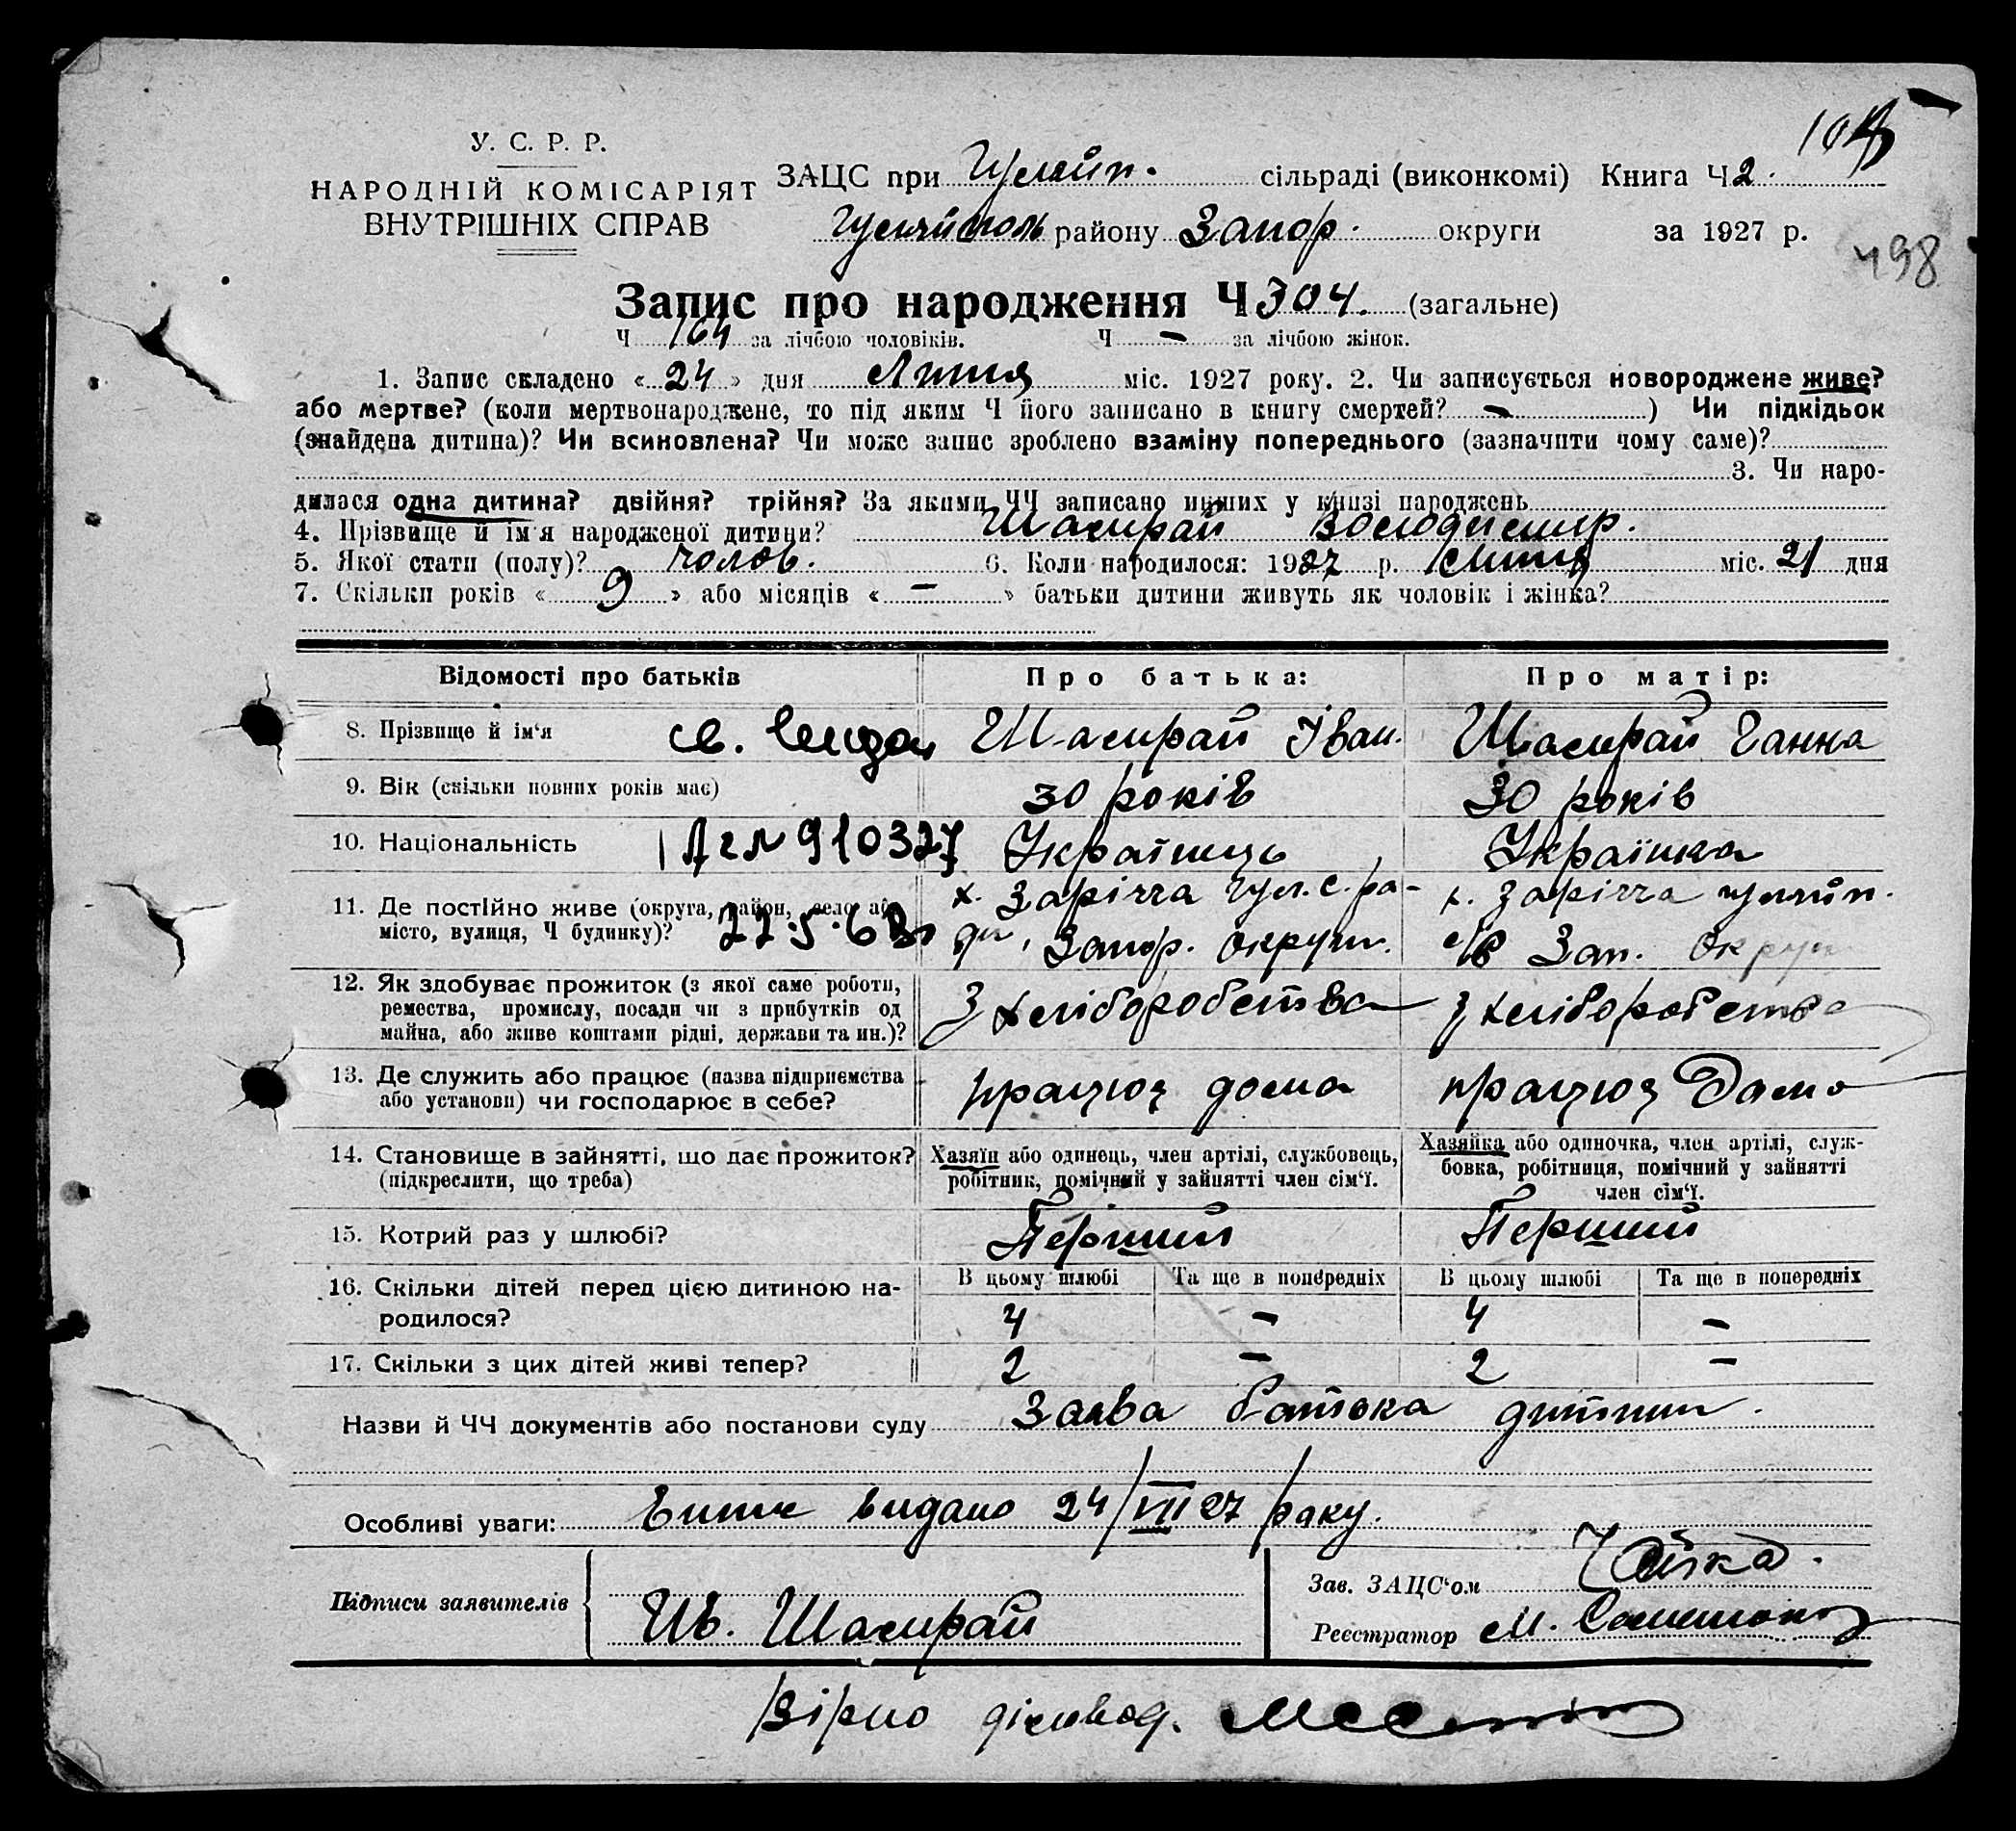 У. С. Р. Р.
НАРОДНІЙ КОМІСАРІЯТ
ВНУТРІШНІХ СПРАВ
ЗАЦС при Гуляйп. сільраді (виконкомі) Книга Ч 2.
Гуляйполь району Запор. округи за 1927 р.
498
Запис про народження Ч 304. (загальне)
Ч 164 за лічбою чоловіків. Ч — за лічбою жінок.
1. Запис складено « 24 » дня Липня міс. 1927 року. 2. Чи записується новороджене живе?
або мертве? (коли мертвонароджене, то під яким Ч його записано в книгу смертей? — ) Чи підкідьок
(знайдена дитина)? Чи всиновлена? Чи може запис зроблено взаміну попереднього (зазначити чому саме)?
3. Чи наро-
дилася одна дитина? двійня? трійня? За якими ЧЧ записано инших у книзі народжень
4. Прізвище й ім'я народженої дитини? Шамрай Володимир.
5. Якої стати (полу)? чолов. 6. Коли народилося: 1927 р. Липня міс. 21 дня
7. Скільки років « 9 » або місяців « — » батьки дитини живуть як чоловік і жінка?
Відомості про батьків Про батька: Про матір:
8. Прізвище й ім'я св. Шамрай Іван. Шамрай Ганна
9. Вік (скільки повних років має) 30 років 30 років
10. Національність 910327 Українець Українка
11. Де постійно живе (округа, район, село або х. Зарічча Гул. с. ра- х. Зарічча гуляйп.
місто, вулиця, Ч будинку)? 22.5.63 ди, Запор. округи. с/в Зап. Округи
12. Як здобуває прожиток (з якої саме роботи,
ремества, промислу, посади чи з прибутків од З хліборобства з хліборобства
майна, або живе коштами рідні, держави та ин.)?
13. Де служить або працює (назва підприємства
або установи) чи господарює в себе? працює дома працює дома
14. Становище в зайнятті, що дає прожиток? Хазяїн або одинець, член артілі, службовець, Хазяйка або одиночка, член артілі, служ-
(підкреслити, що треба) робітник, помічний у зайнятті член сім'ї. бовка, робітниця, помічний у зайнятті
член сім'ї.
15. Котрий раз у шлюбі? Перший Перший
16. Скільки дітей перед цією дитиною на- В цьому шлюбі Та ще в попередніх В цьому шлюбі Та ще в попередніх
родилося? 4 — 4 —
17. Скільки з цих дітей живі тепер? 2 — 2 —
Назви й ЧЧ документів або постанови суду Заява батька дитини.
Особливі уваги: видано 24/VII 27 року.
Підписи заявителів Ив. Шамрай
Зав. ЗАЦС'ом Чайка.
Реєстратор М.
Вірно діловод.